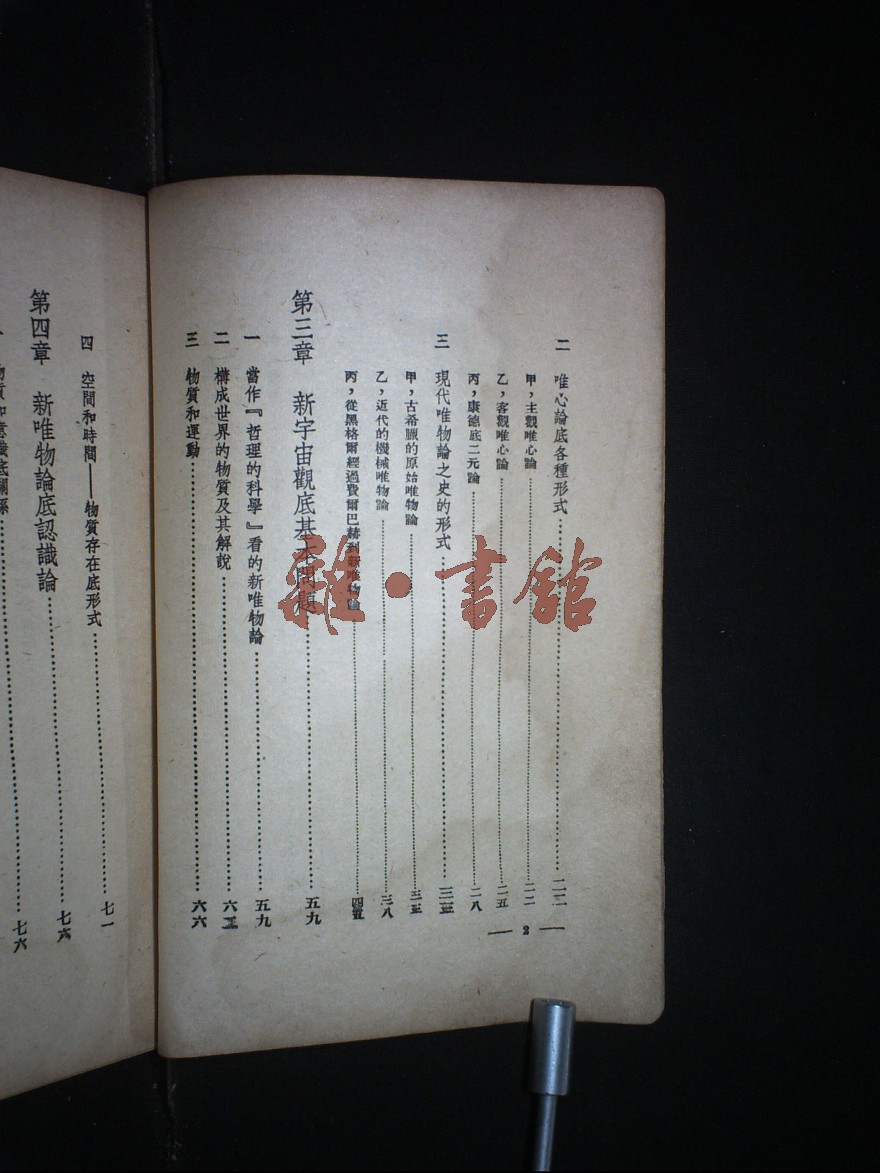 二 唯心論底各種形式……二二
甲，主觀唯心論……二二
乙，客觀唯心論……二五
丙，康德底二元論……二八
三 現代唯物論之史的形式……三五
甲，古希臘的原始唯物論……三五
乙，近代的機械唯物論……三八
丙，從黑格爾經過費爾巴赫到新唯物論……四五
第三章 新宇宙觀底基本問題……五九
一 當作『哲理的科學』看的新唯物論……五九
二 構成世界的物質及其解說……六三
三 物質和運動……六六
— 2 —
四 空間和時間——物質存在底形式……七一
第四章 新唯物論底認識論……七六
一 物質和意識底關係……七六
雜·書館